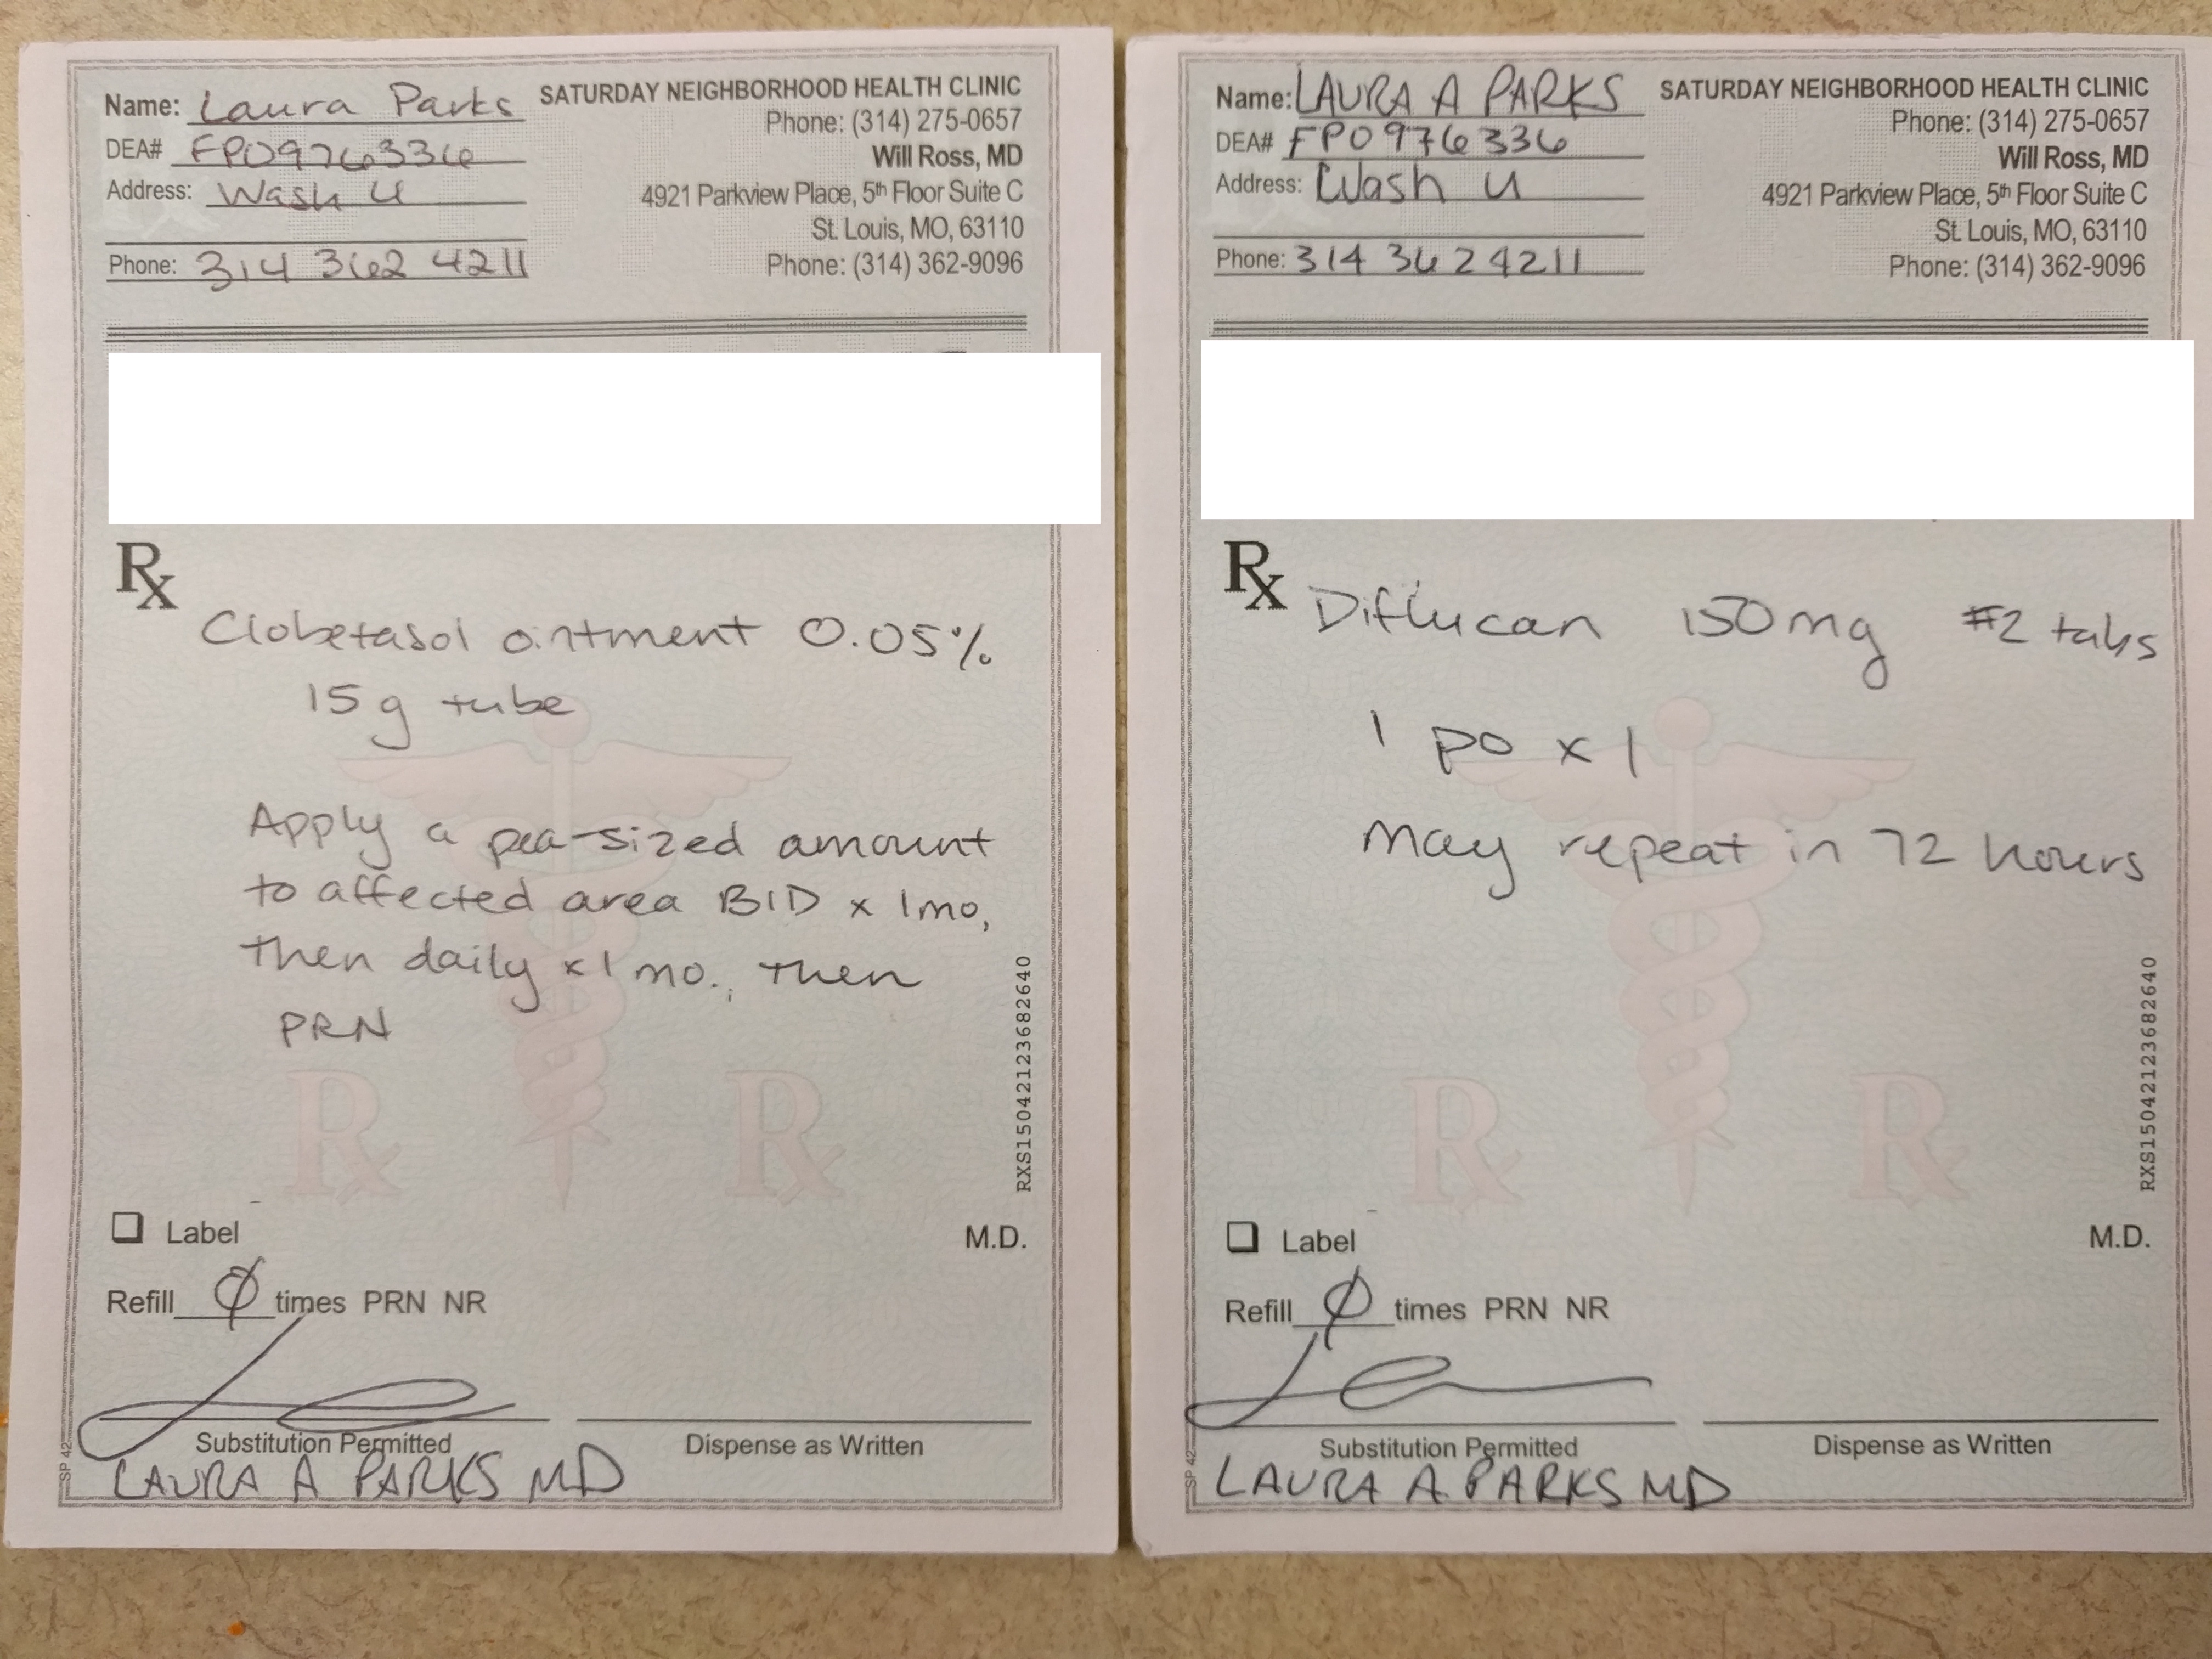 Name: Laura Parks
DEA# FP0976336
Address: Wash U
Phone: 314 362 4211
SATURDAY NEIGHBORHOOD HEALTH CLINIC
Phone: (314) 275-0657
Will Ross, MD
4921 Parkview Place, 5th Floor Suite C
St. Louis, MO, 63110
Phone: (314) 362-9096
Rx
Clobetasol ointment 0.05%
15 g tube
Apply a pea-sized amount
to affected area BID x 1mo,
then daily x 1 mo., then
PRN
Rx Rx
RXS1504212123682640
Label
M.D.
Refill 0 times PRN NR
Substitution Permitted
Dispense as Written
LAURA A PARKS MD
SP 42
Name: LAURA A PARKS
DEA# FP0976336
Address: Wash U
Phone: 314 362 4211
SATURDAY NEIGHBORHOOD HEALTH CLINIC
Phone: (314) 275-0657
Will Ross, MD
4921 Parkview Place, 5th Floor Suite C
St. Louis, MO, 63110
Phone: (314) 362-9096
Rx
Diflucan 150mg #2 tabs
1 po x 1
May repeat in 72 hours
Rx Rx
RXS1504212123682640
Label
M.D.
Refill 0 times PRN NR
Substitution Permitted
Dispense as Written
LAURA A PARKS MD
SP 42